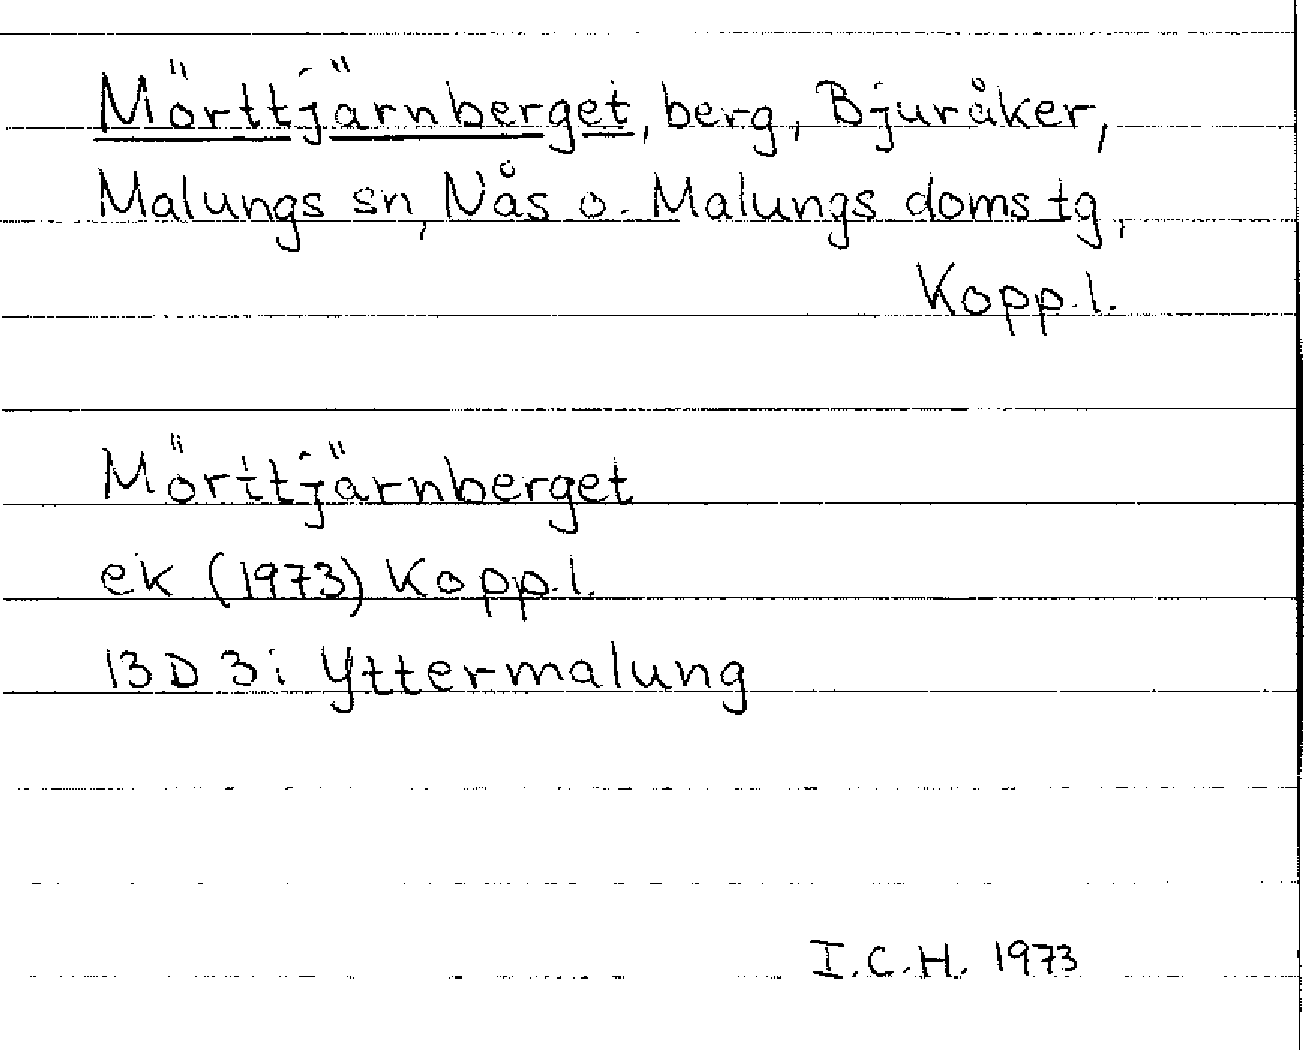 Mörttjärnberget, berg, Bjuråker,
Malungs sn, Nås o. Malungs doms tg,
Kopp.l.
Mörttjärnberget
ek (1973) Kopp.l.
13D 3i Yttermalung
I.C.H. 1973